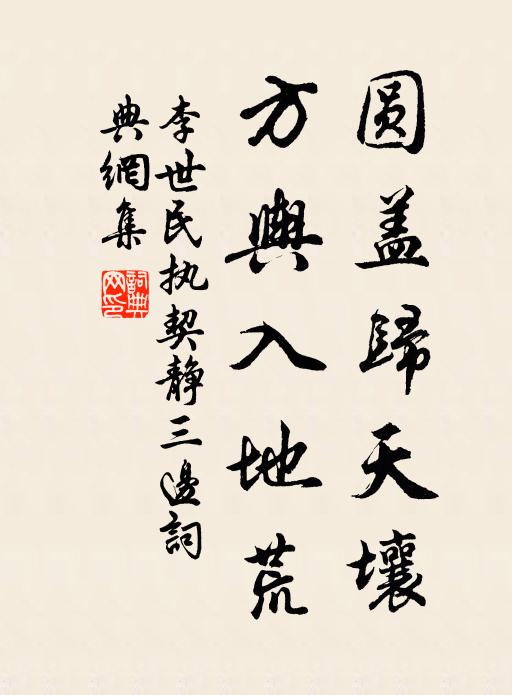 圆盖歸天壤
方輿入地荒
李世民执契静三邊詞
典網集
詞典
网印